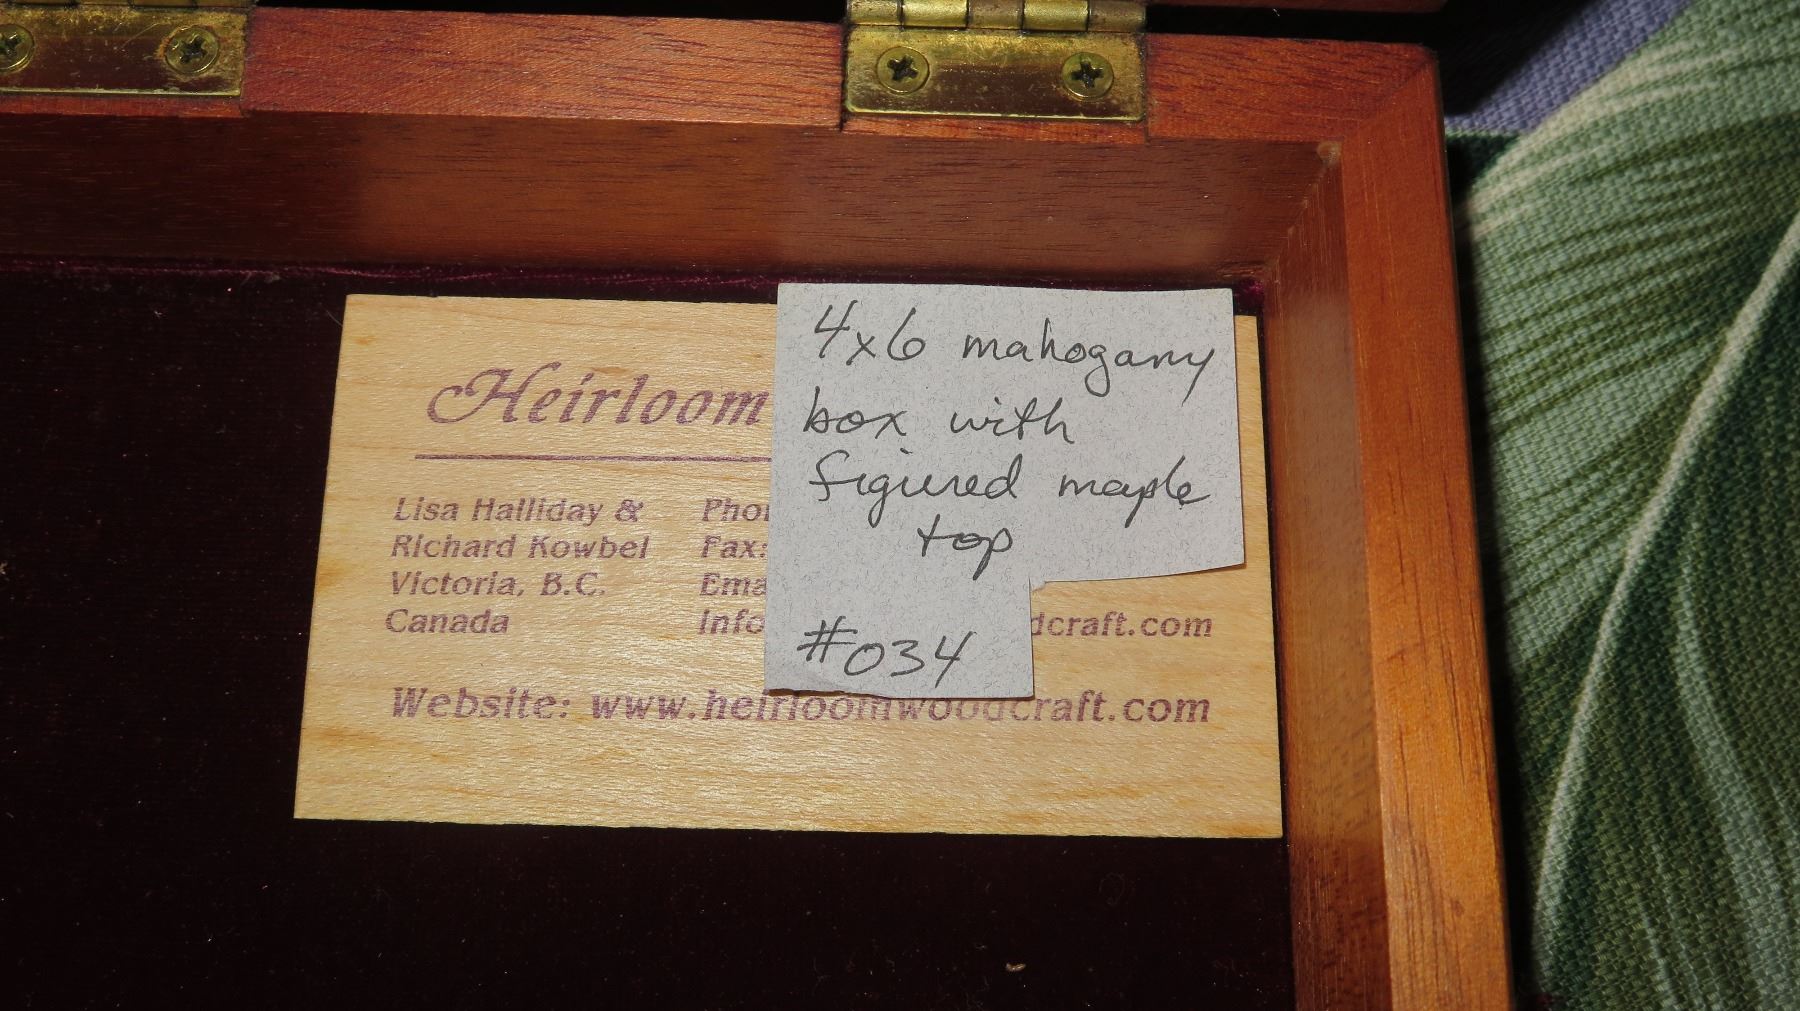 Heirloom
Lisa Halliday &
Richard Kowbel
Victoria, B.C.
Canada
Fax:
Info
dcraft.com
Website: www.heirloomwoodcraft.com
4x6 mahogany
box with
figured maple
top
#034